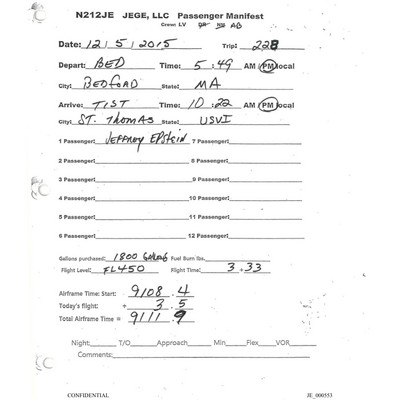 N212JE JEGE, LLC Passenger Manifest
Crew: LV AB
Date: 12/5/2015 Trip: 228
Depart: BED Time: 5:49 AM PM local
City: BEDFORD State: MA
Arrive: TIST Time: 10:22 AM PM local
City: ST. THOMAS State: USVI
1 Passenger: JEFFREY EPSTEIN 7 Passenger:
2 Passenger: 8 Passenger:
3 Passenger: 9 Passenger:
4 Passenger: 10 Passenger:
5 Passenger: 11 Passenger:
6 Passenger: 12 Passenger:
Gallons purchased: 1800 Fuel Burn lbs.
Flight Level: FL450 Flight Time: 3+33
Airframe Time: Start: 9108.4
Today's flight: + 3.5
Total Airframe Time = 9111.9
Night: T/O Approach Min Flex VOR
Comments:
CONFIDENTIAL JE_000553